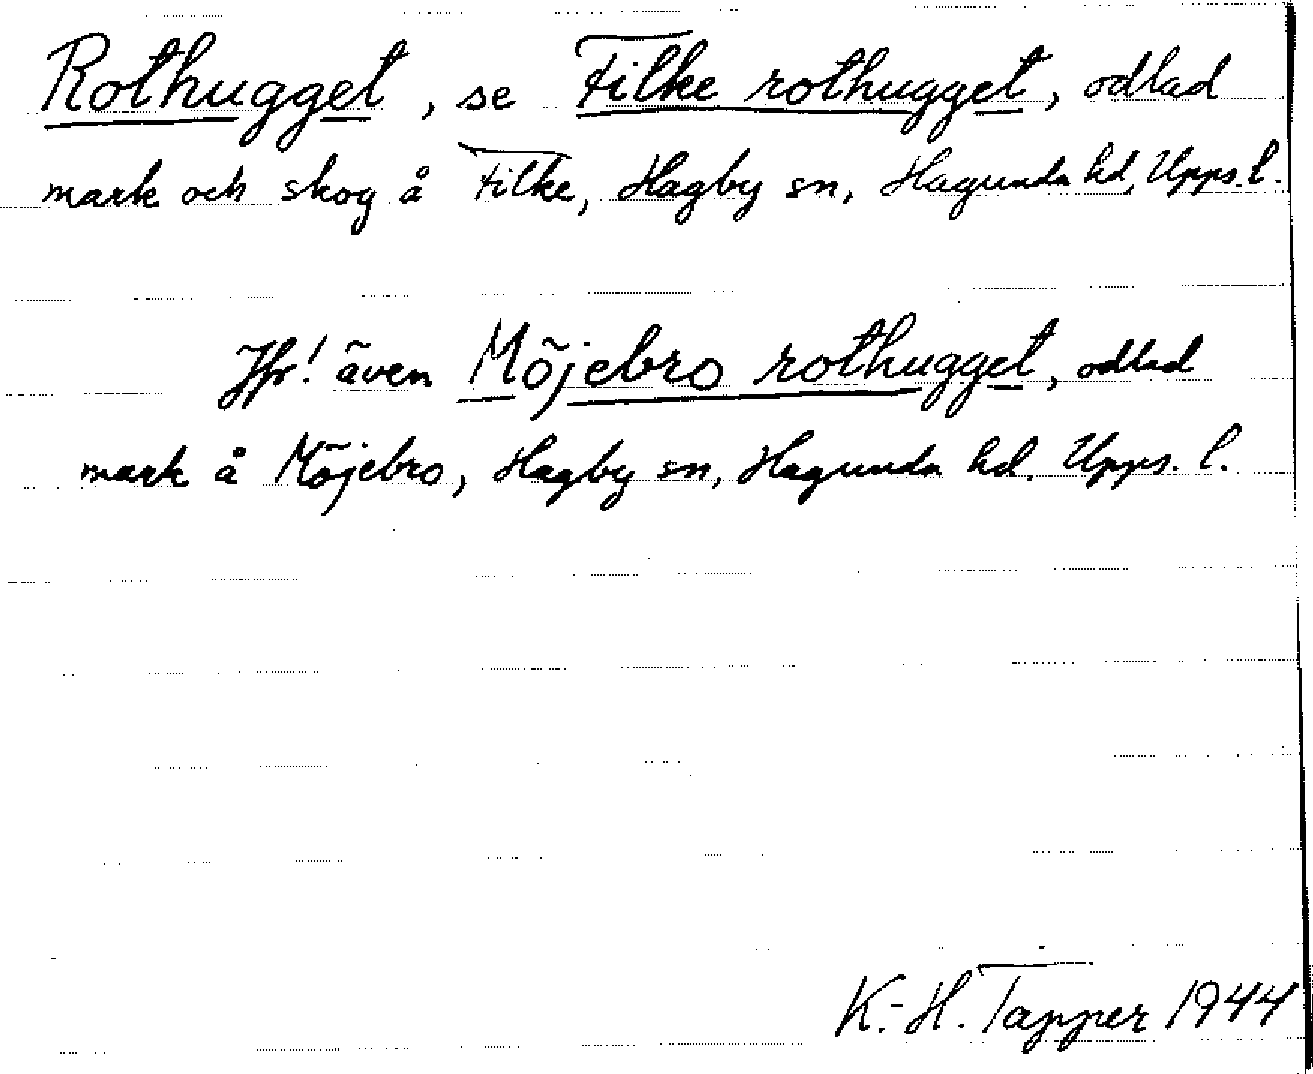 Rothugget, se Filke rothugget, odlad
mark och skog å Filke, Hagby sn, Hagunda hd, Upps. l.
Jfr! även Möjebro rothugget, odlad
mark å Möjebro, Hagby sn, Hagunda hd. Upps. l.
K.-H. Tapper 1944